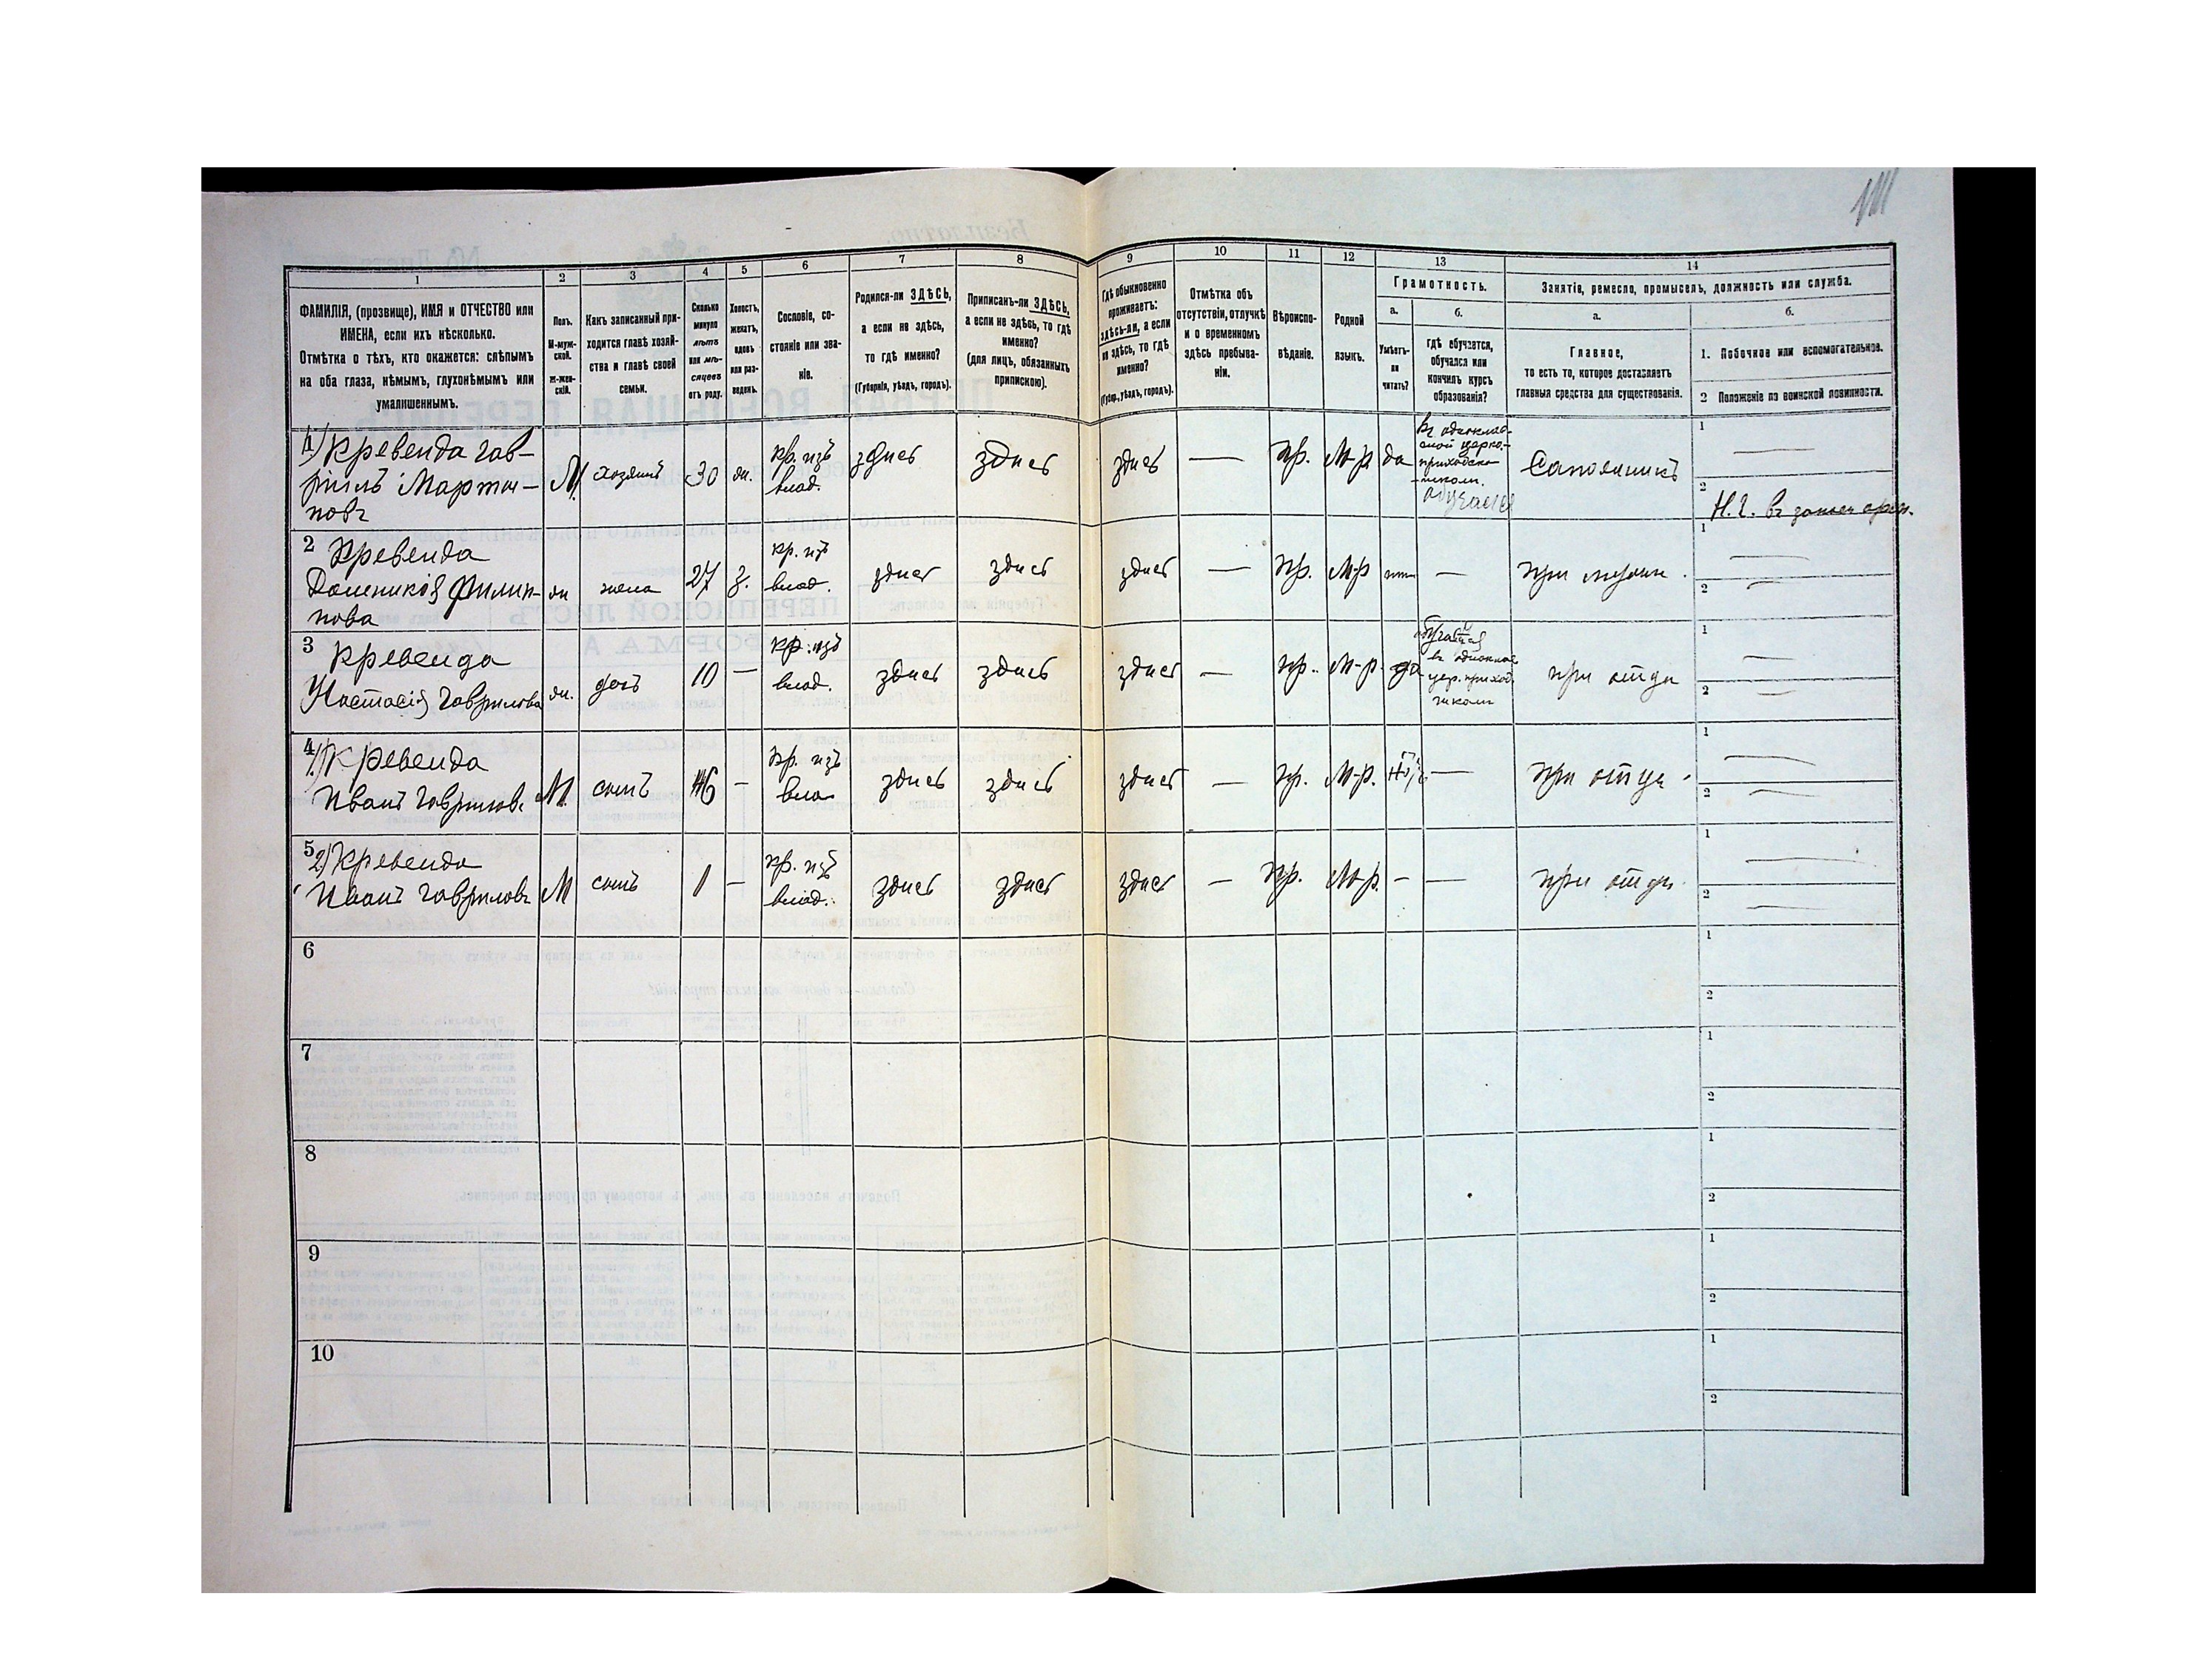 1 2 3 4 5 6 7 8 9 10 11 12 13 14
ФАМИЛІЯ, (прозвище), ИМЯ и ОТЧЕСТВО или
ИМЕНА, если ихъ нѣсколько.
Отмѣтка о тѣхъ, кто окажется: слѣпымъ
на оба глаза, нѣмымъ, глухонѣмымъ или
умалишеннымъ.
Полъ.
М-муж-
ской.
Ж-жен-
скій.
Какъ записанный при-
ходится главѣ хозяй-
ства и главѣ своей
семьи.
Сколько
минуло
лѣтъ
или мѣ-
сяцевъ
отъ роду.
Холостъ,
женатъ,
вдовъ
или раз-
веденъ.
Сословіе, со-
стояніе или зва-
ніе.
Родился-ли ЗДѢСЬ,
а если не здѣсь,
то гдѣ именно?
(Губернія, уѣздъ, городъ).
Приписанъ-ли ЗДѢСЬ,
а если не здѣсь, то гдѣ
именно?
(для лицъ, обязанныхъ
припискою).
Гдѣ обыкновенно
проживаетъ:
здѣсь-ли, а если
не здѣсь, то гдѣ
именно?
(Губер., уѣздъ, городъ).
Отмѣтка объ
отсутствіи, отлучкѣ
и о временномъ
здѣсь пребыва-
ніи.
Вѣроиспо-
вѣданіе.
Родной
языкъ.
Грамотность.
а.
Умѣетъ-
ли
читать?
б.
гдѣ обучается,
обучался или
кончилъ курсъ
образованія?
Занятіе, ремесло, промыселъ, должность или служба.
а.
Главное,
то есть то, которое доставляетъ
главныя средства для существованія.
б.
1. Побочное или вспомогательное.
2 Положеніе по воинской повинности.
1) Кревенда Гав-
ріилъ Марты-
новъ
М хозяинъ 30 ж. кр. изъ
влад.
здѣсь здѣсь здѣсь — пр. М-р да
въ одноклас-
сной церко.-
приходско
школѣ.
обучался
Сапожникъ
1 —
2 Н. Ч. въ запасѣ
2 Кревенда
Доменикія Филип-
пова
ж жена 27 з. кр. изъ
влад.
здѣсь здѣсь здѣсь — пр. М-р нѣтъ — при мужѣ.
1 —
2 —
3 Кревенда
Настасія Гаврилова
ж. дочь 10 — кр. изъ
влад.
здѣсь здѣсь здѣсь — пр. М-р. да
въ однокл.
цер. приход.
школѣ
при отцѣ
1 —
2 —
4 1) Кревенда
Иванъ Гавриловъ
М сынъ 6 — кр. изъ
вла
здѣсь здѣсь здѣсь — пр. М-р. — при отцѣ
1 —
2 —
5 2) Кревенда
Иванъ Гавриловъ
М сынъ 1 — кр. изъ
влад.
здѣсь здѣсь здѣсь — пр. М-р. — — при отцѣ.
1 —
2 —
6
1
2
7
1
2
8
1
2
9
1
2
10
1
2